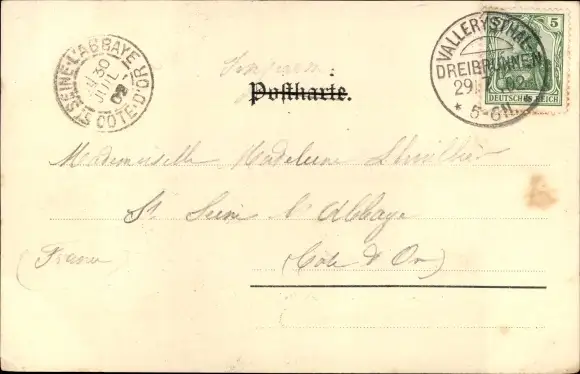 ST SEINE-L'ABBAYE
30
JUIL
02
CÔTE-D'OR
VALLERYSTHAL-
DREIBRUNNEN
29
* 5-6N.
5
DEUTSCHES REICH
Postkarte.
Mademoiselle Madeleine Lhuillier
St Seine l'Abbaye
(Côte d'Or)
(France)